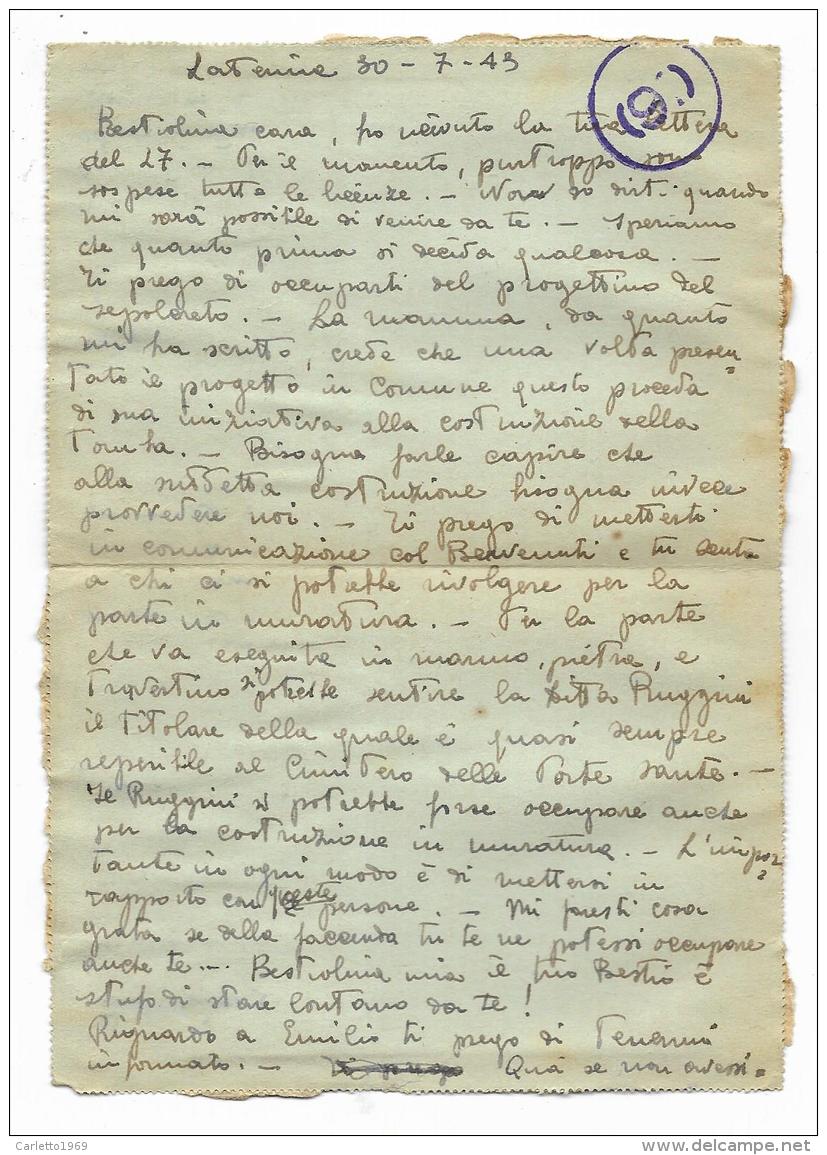 Laterina 30 - 7 - 43
(9)
Bestiolina cara, ho ricevuto la tua lettera
del 27. - Per il momento, purtroppo sono
sospese tutte le licenze. - Non so dirti quando
mi sarà possibile di venire da te. - Speriamo
che quanto prima si decida qualcosa. -
Ti prego di occuparti del progettino del
sepolcreto. - La mamma, da quanto
mi ha scritto, crede che una volta presen=
tato il progetto in Comune questo proceda
di sua iniziativa alla costruzione della
tomba. - Bisogna farle capire che
alla suddetta costruzione bisogna invece
provvedere noi. - Ti prego di metterti
in comunicazione col Benvenuti e tu senta
a chi ci si potrebbe rivolgere per la
parte in muratura. - Per la parte
che va eseguita in marmo, pietra, e
travertino si potrebbe sentire la ditta Ruggini
il titolare della quale è quasi sempre
reperibile al Cimitero delle Porte Sante. -
Il Ruggini si potrebbe forse occupare anche
per la costruzione in muratura. - L'impor=
tante in ogni modo è di mettersi in
rapporto con queste persone. - Mi faresti cosa
grata se della faccenda tu te ne potessi occupare
anche te. - Bestiolina mia il tuo Bestio è
stufo di stare lontano da te!
Riguardo a Emilio ti prego di tenermi
informato. - Qua se non avessi=
Carletto1969
delcampe.net